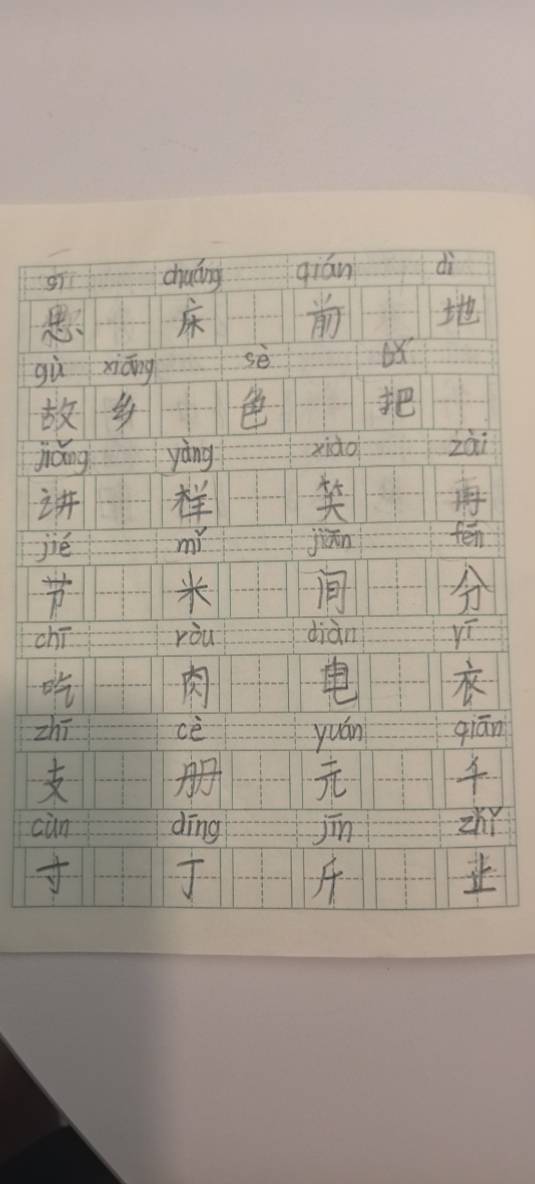 sī chuáng qián dì
思 床 前 地
gù xiāng sè bǎ
故 乡 色 把
jiǎng yàng xiào zài
讲 样 笑 再
jié mǐ jiān fēn
节 米 间 分
chī ròu diàn yī
吃 肉 电 衣
zhī cè yuán qiān
支 册 元 千
cùn dīng jīn zhǐ
寸 丁 斤 止